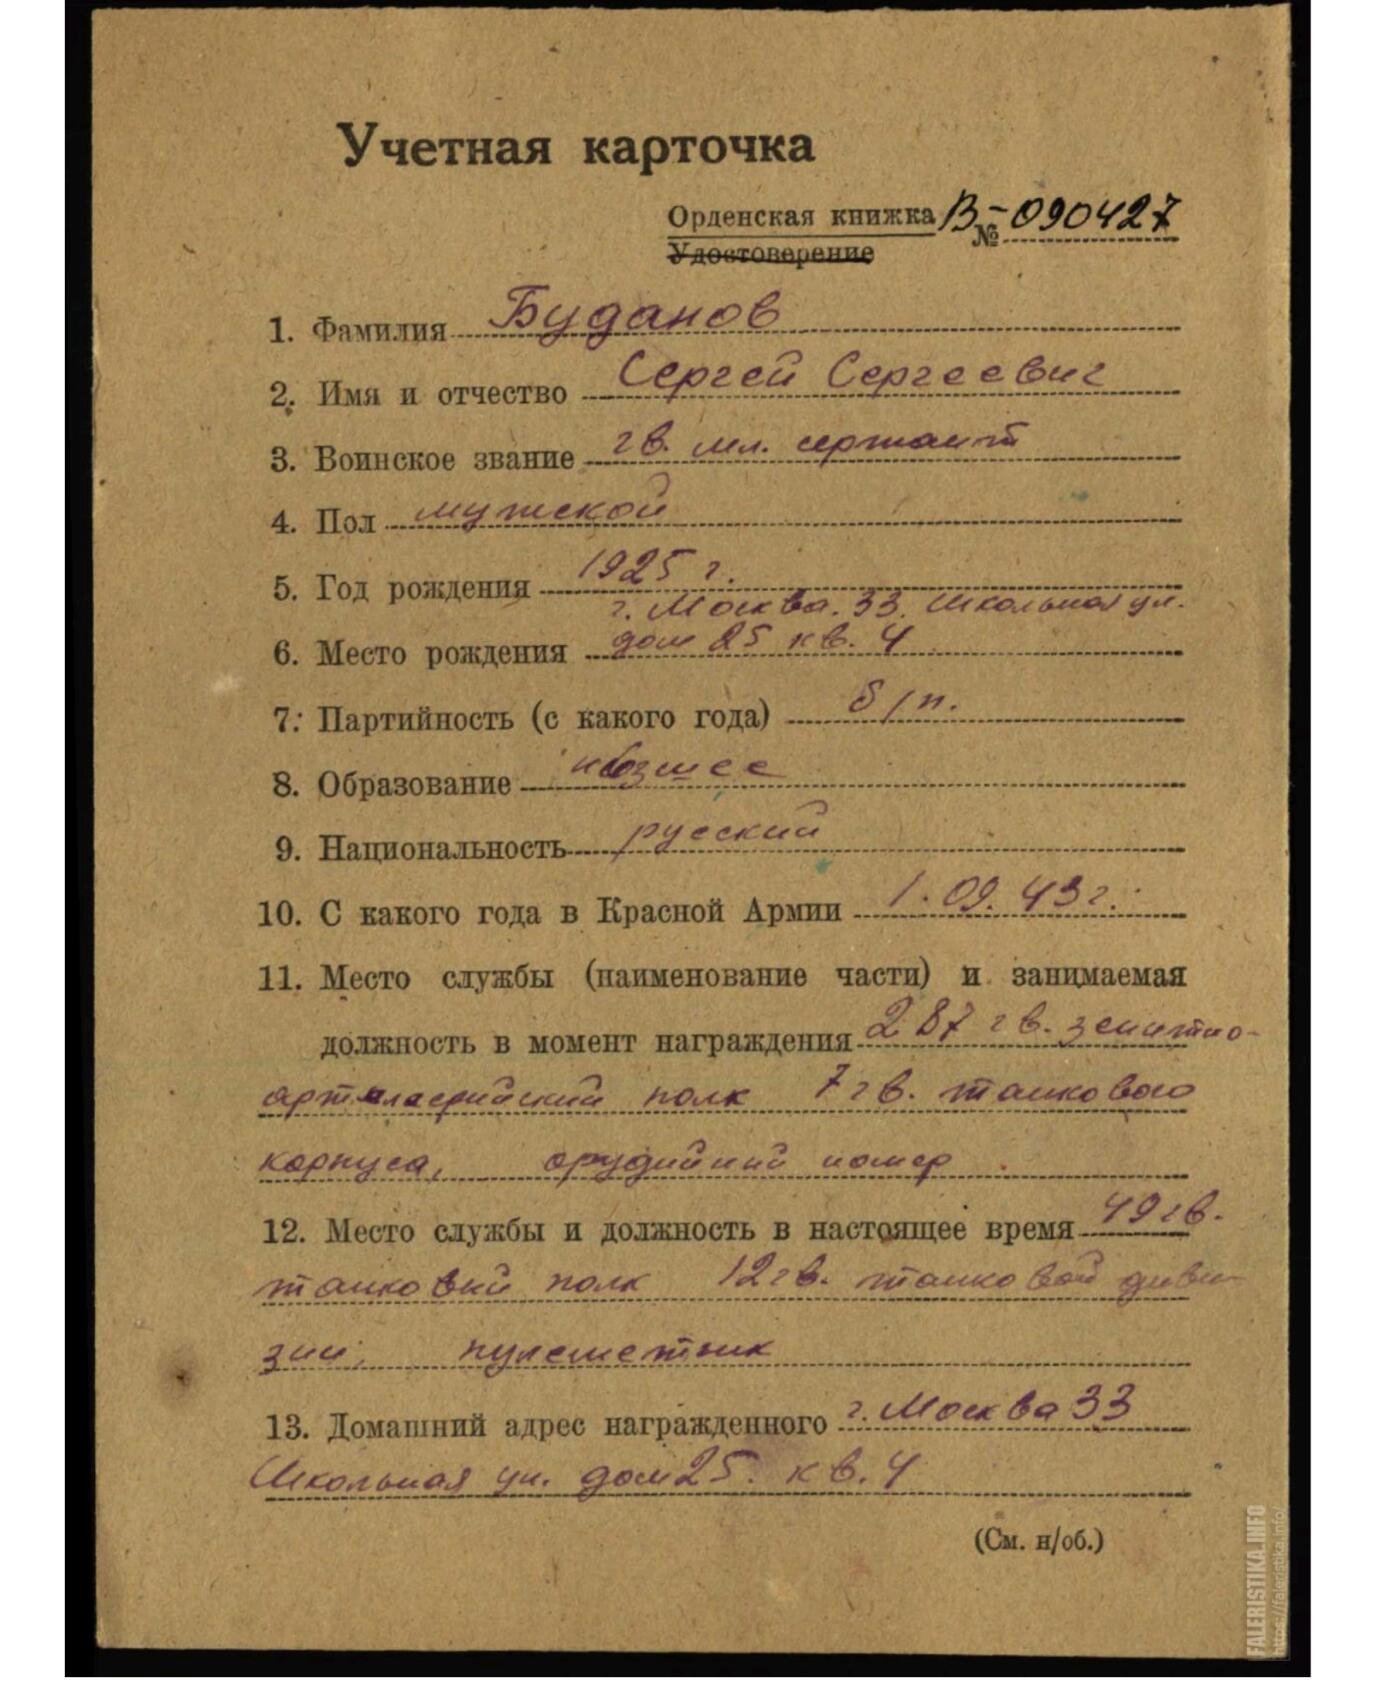 Учетная карточка
Орденская книжка № В-090427
Удостоверение
1. Фамилия Буданов
2. Имя и отчество Сергей Сергеевич
3. Воинское звание гв. мл. сержант
4. Пол мужской
5. Год рождения 1925 г.
г. Москва. 33. Школьная ул.
6. Место рождения дом 25 кв. 4
7. Партийность (с какого года) б/п.
8. Образование низшее
9. Национальность русский
10. С какого года в Красной Армии 1.09.43г.
11. Место службы (наименование части) и занимаемая
должность в момент награждения 287 гв. зенитно-
артиллерийский полк 7 гв. танкового
корпуса, орудийний номер
12. Место службы и должность в настоящее время 49 гв.
танковый полк 12 гв. танковой диви-
зии, пулеметчик
13. Домашний адрес награжденного г. Москва 33
Школьная ул. дом 25. кв. 4
(См. н/об.)
FALERISTIKA.INFO
https://faleristika.info/